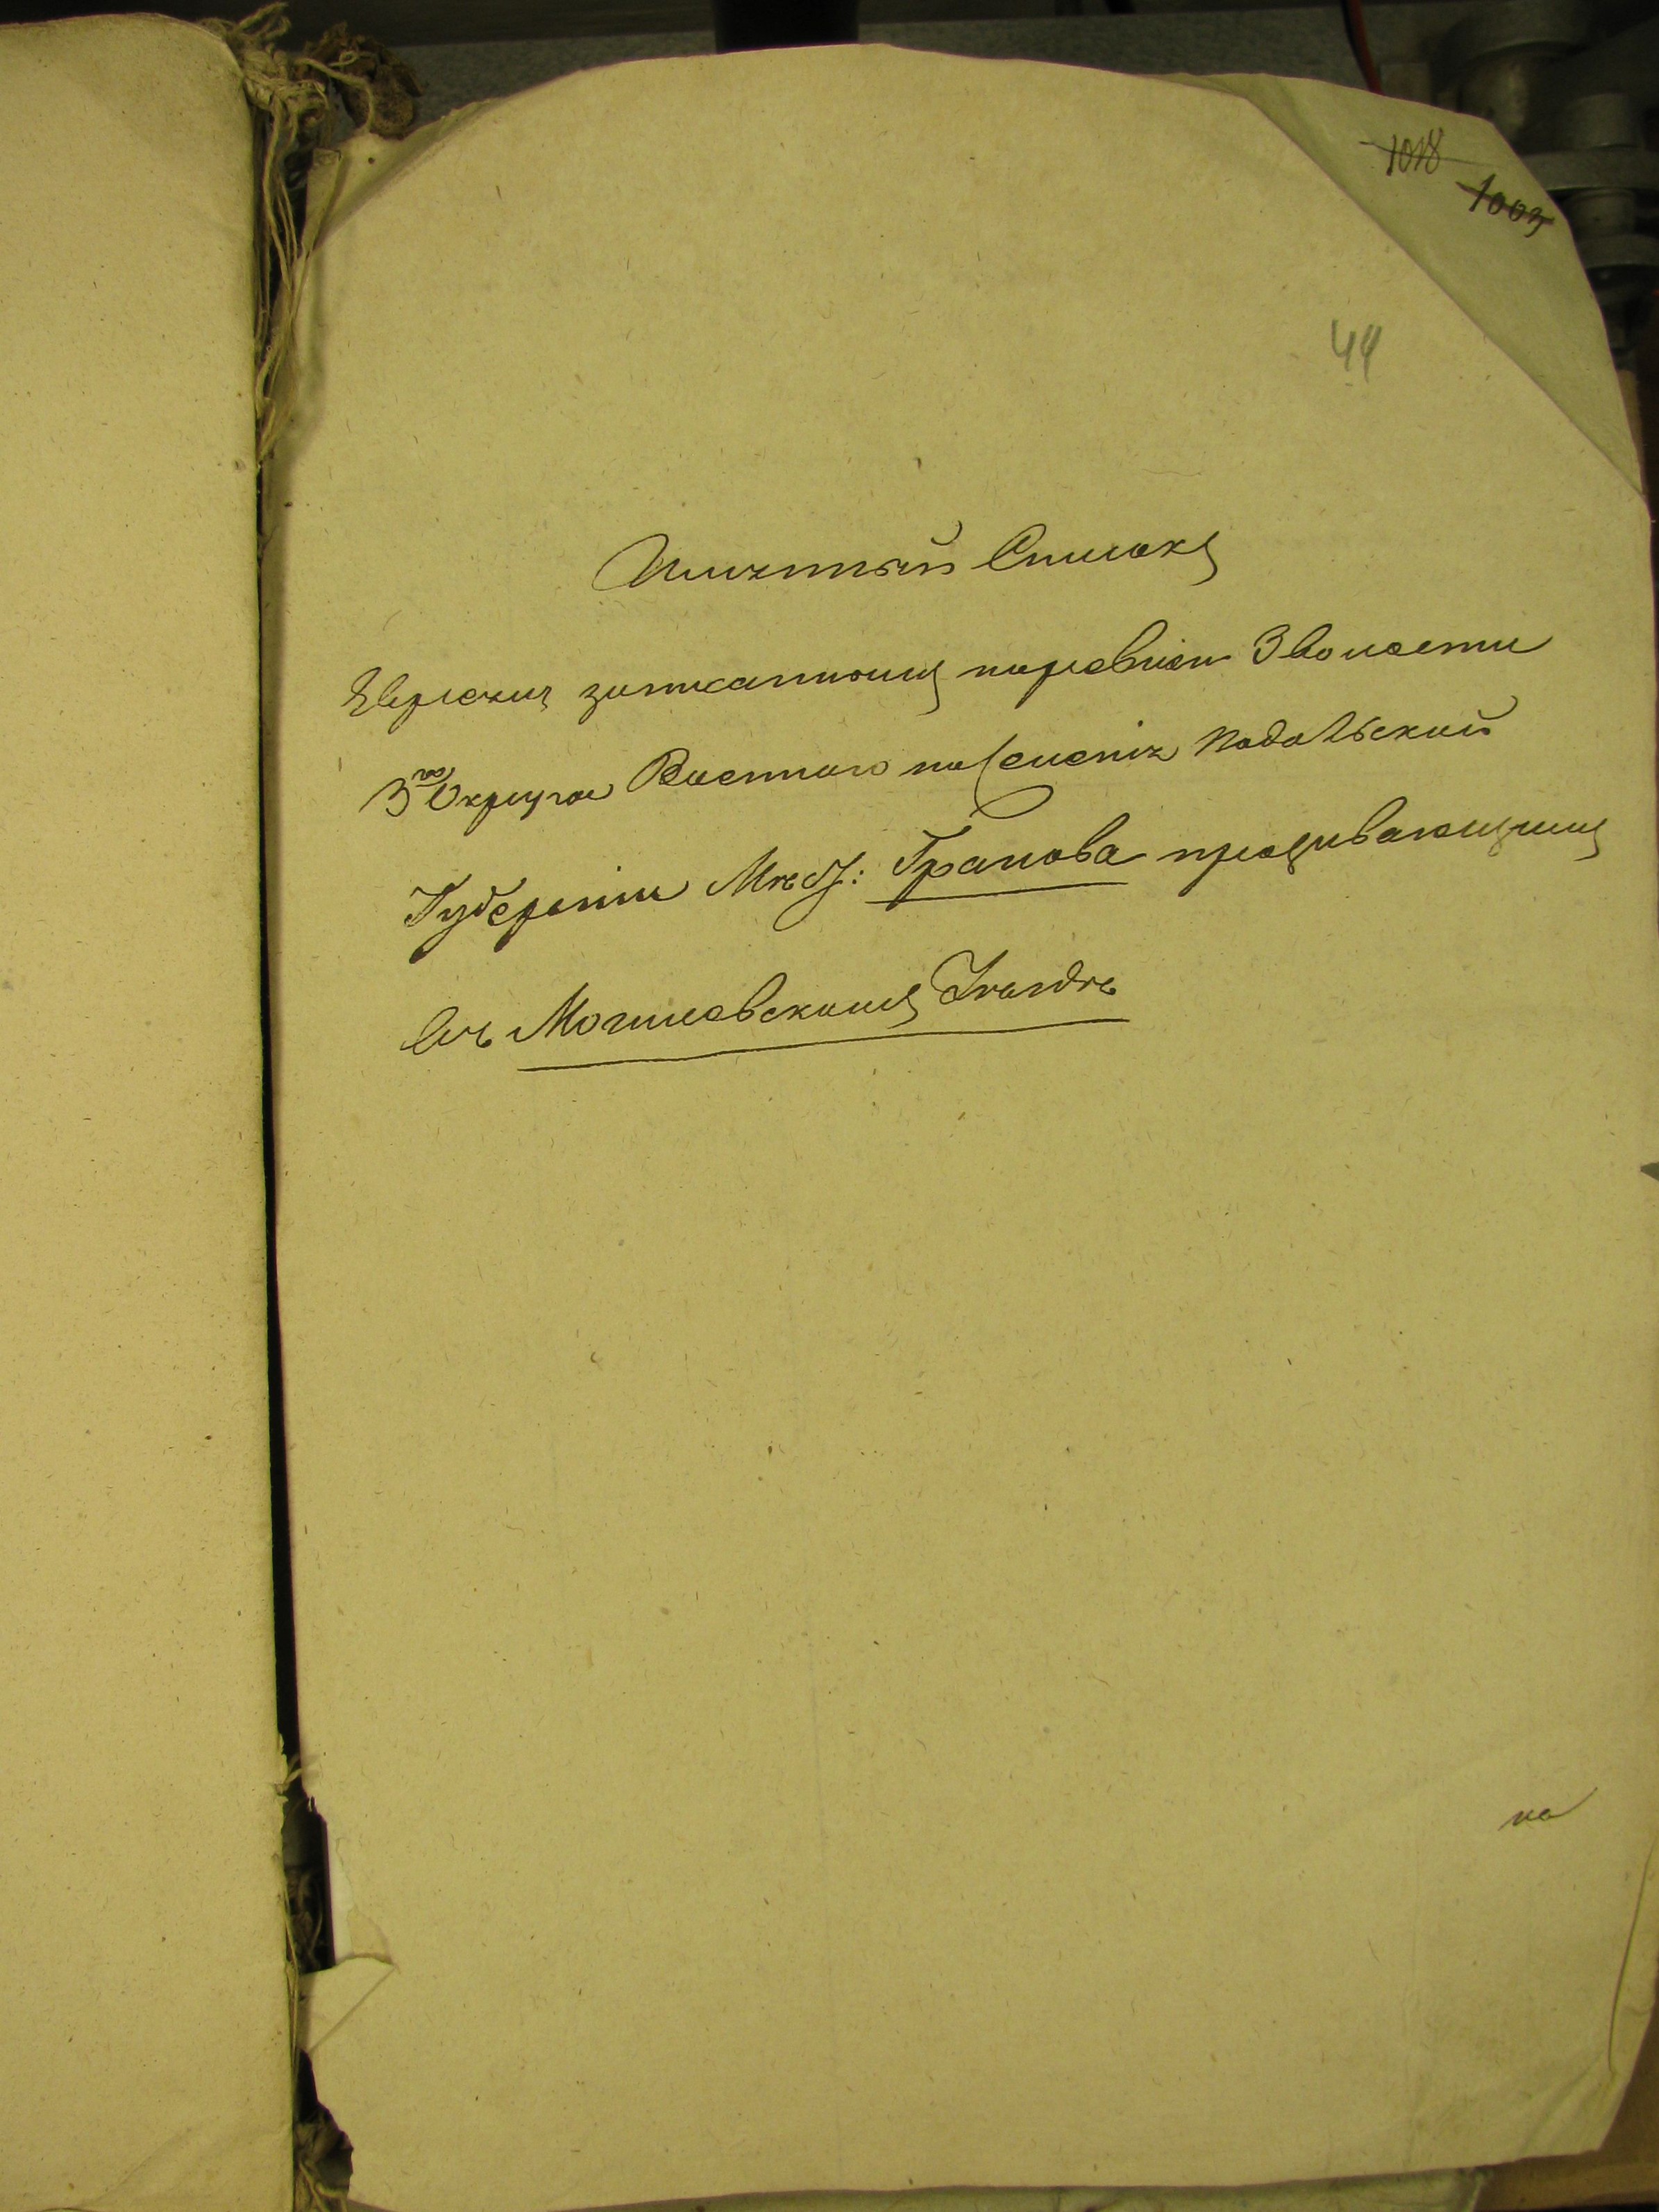 1018
1003
44
Именный Списокъ
Евреямъ записаннымъ по ревизіи 3 волости
3го Округа Военного поселенія Подольской
Губерніи Мѣст: Гранова проживающимъ
въ Могилевскомъ Уѣздѣ